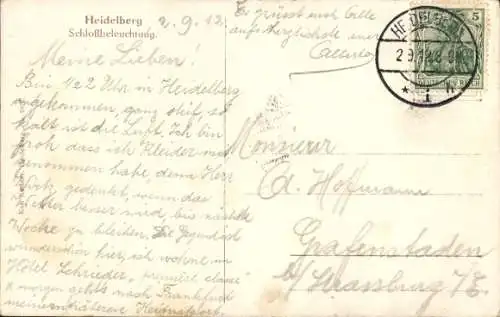 Heidelberg
Schloßbeleuchtung.
2.9.12.
Er grüsst euch Alle
aufs herzlichste euer
HEIDELBERG
2.9.12.8-9N
* 1 h
5
DEUTSCHES REICH
Meine Lieben!
Bin 1/22 Uhr in Heidelberg
angekommen, ganz steif, so
kalt ist die Luft. Ich bin
froh dass ich Kleider mit
genommen habe, denn Herr
gedenkt, wenn das
Wetter besser wird, bis nächste
Woche zu bleiben. Die Gegend ist
wunderschön hier, ich wohne im
Hôtel Schrieder, "première classe"
morgen gehts nach Frankfurt
meinem früheren Heimatsort.
Monsieur
Ed. Hoffmann
Grafenstaden
b/ Strassburg i/E.